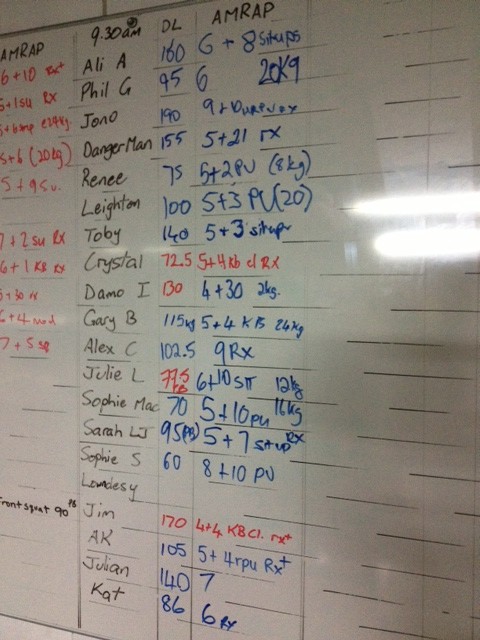 AMRAP
6+10 Rx+
5+1su Rx
5+6 (20kg)
5+9su.
7+2 su Rx
6+1 KB Rx
6+4 mod
7+5 sq
front squat 90 PB
9.30am DL AMRAP
Ali A 160 6 + 8 situps
Phil G 95 6 20Kg
Jono 190 9+10
DangerMan 155 5+21 rx
Renee 75 5+2PU (8kg)
Leighton 100 5+3 PU(20)
Toby 140 5+3 situps
Crystal 72.5 5+4 kb cl Rx
Damo I 130 4+30 2kg.
Gary B 115kg 5+4 KB 24kg
Alex C 102.5 9 Rx
Julie L 77.5 PB 6+10 sit 12kg
Sophie Mac 70 5+10pu 16kg
Sarah LJ 95(PB) 5+7 situp Rx
Sophie S 60 8+10 PU
Lowdesy
Jim 170 4+4 KBCl. rx+
AK 105 5+4rpu Rx+
Julian 140 7
Kat 86 6 Rx